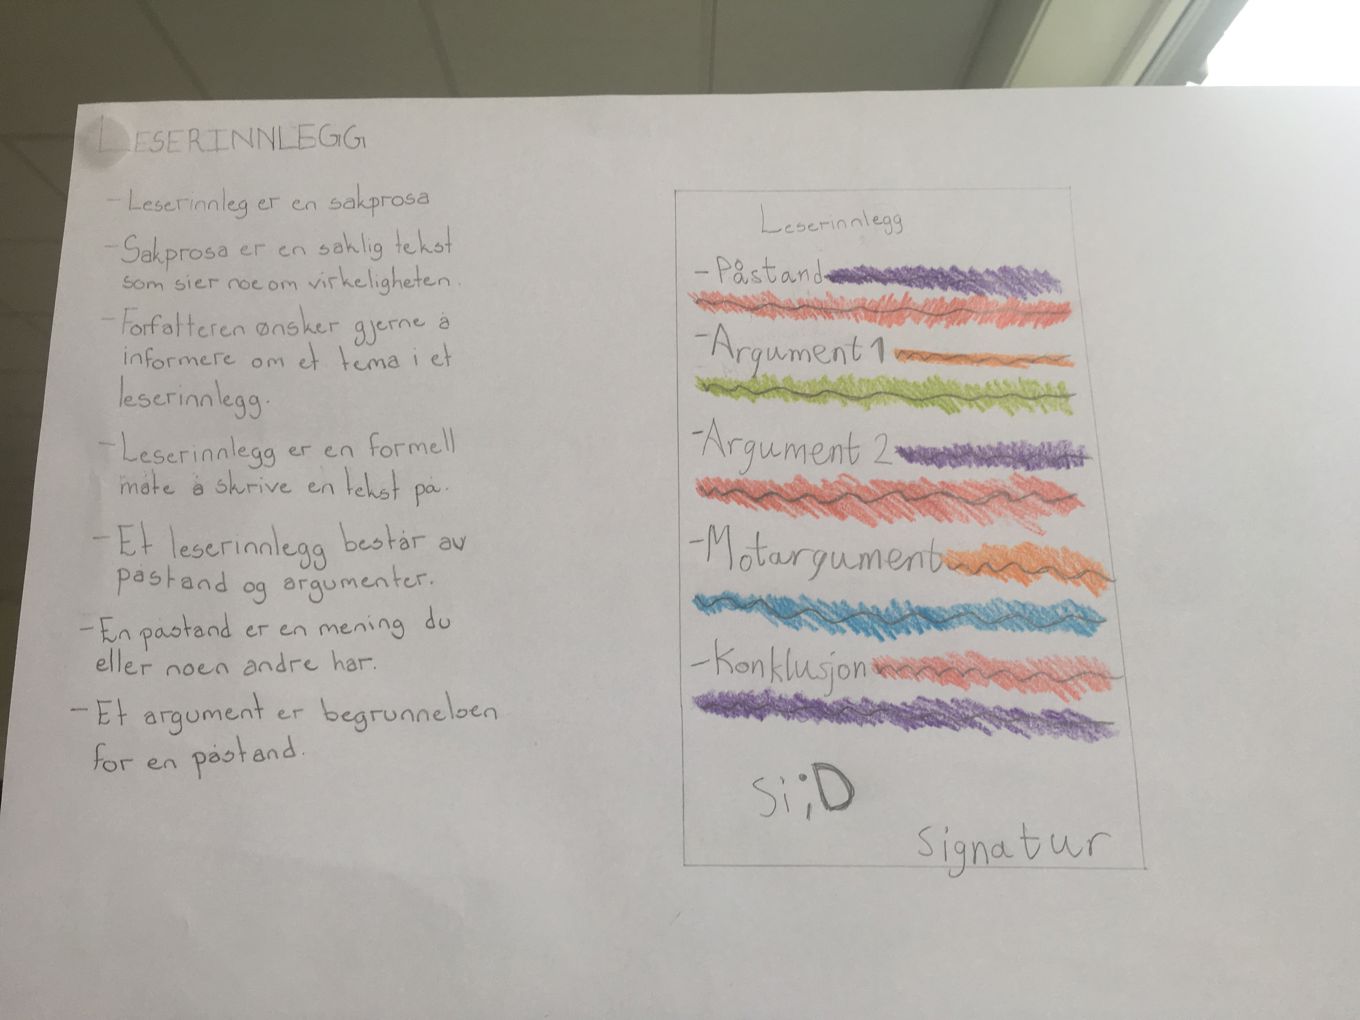 LESERINNLEGG
- Leserinnleg er en sakprosa
- Sakprosa er en saklig tekst
som sier noe om virkeligheten.
- Forfatteren ønsker gjerne å
informere om et tema i et
leserinnlegg.
- Leserinnlegg er en formell
måte å skrive en tekst på.
- Et leserinnlegg består av
påstand og argumenter.
- En påstand er en mening du
eller noen andre har.
- Et argument er begrunnelsen
for en påstand.
Leserinnlegg
- Påstand
- Argument 1
- Argument 2
- Motargument
- Konklusjon
Si ;D
Signatur